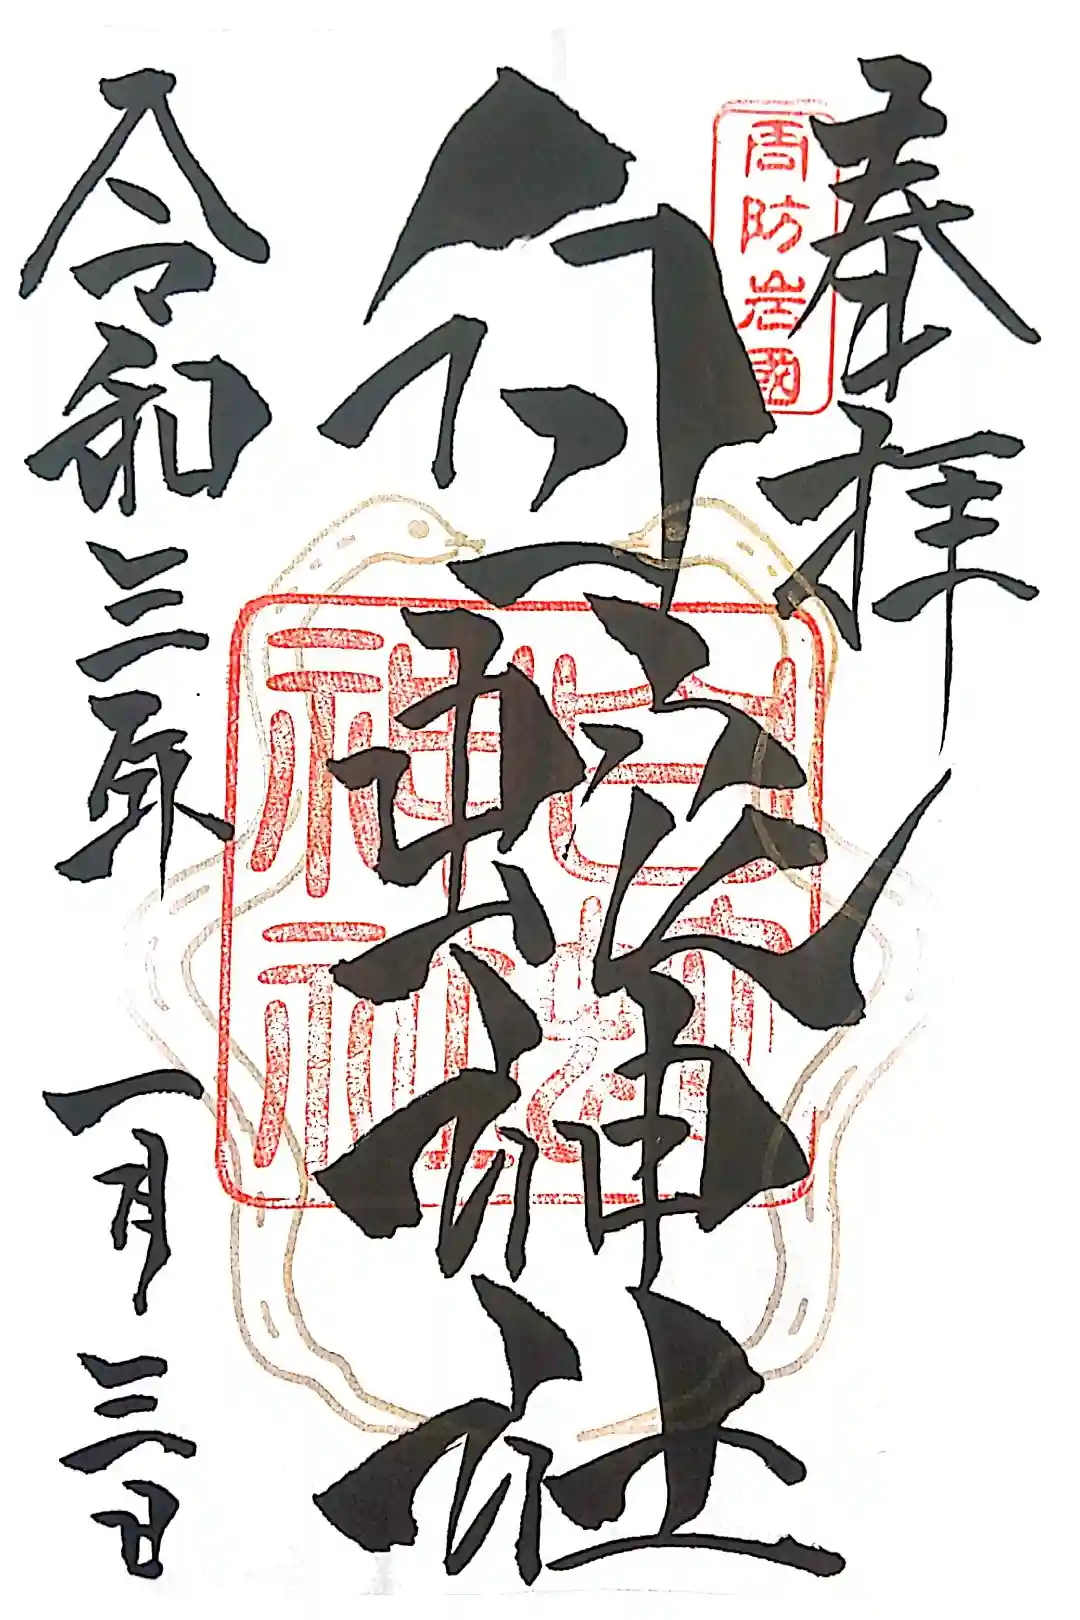 奉拝
周防岩國
白蛇神社
白蛇神社
令和三年 一月三日